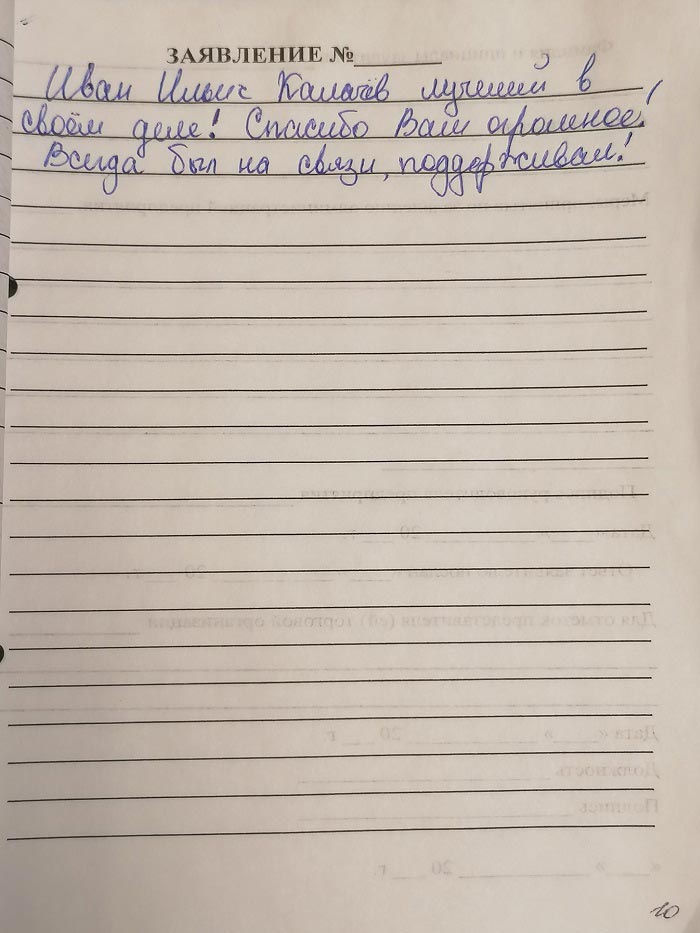 ЗАЯВЛЕНИЕ №
Иван Ильич Калачёв лучший в
своём деле! Спасибо Вам огромное!
Всегда был на связи, поддерживал!
10